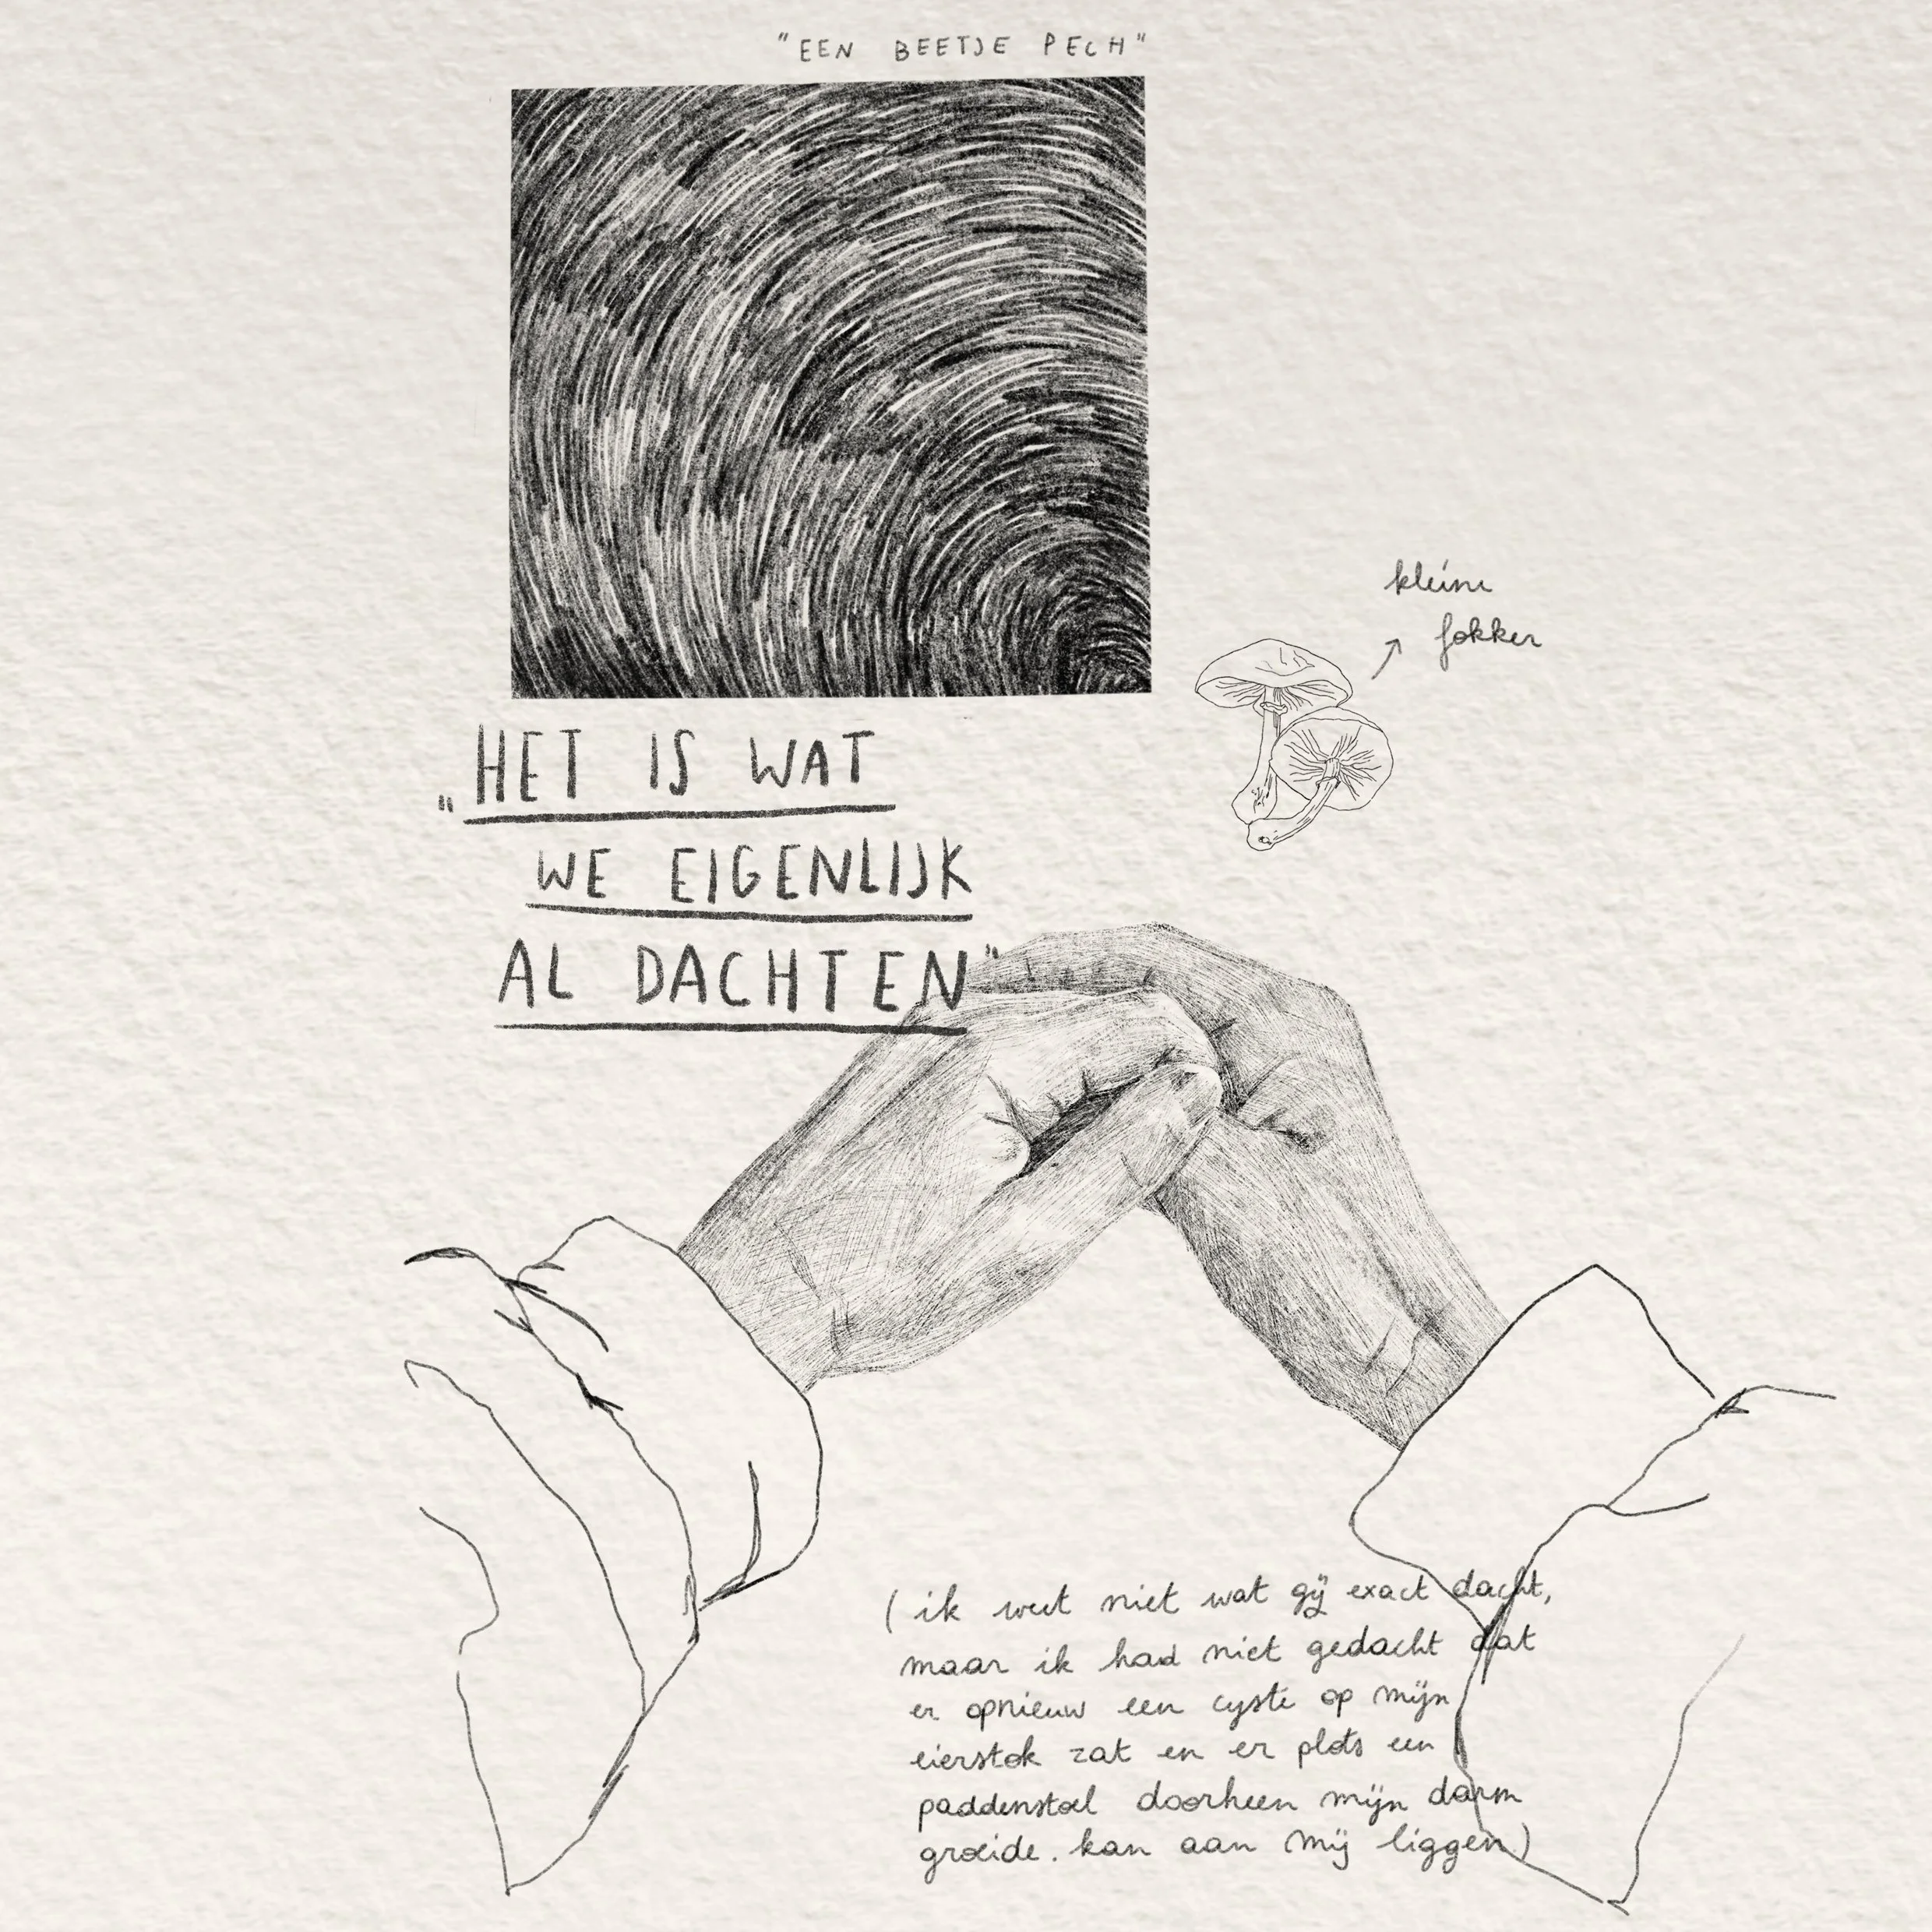 "EEN BEETJE PECH"
kleine
fokker
„HET IS WAT
WE EIGENLIJK
AL DACHTEN"
(ik weet niet wat gij exact dacht,
maar ik had niet gedacht dat
er opnieuw een cyste op mijn
eierstok zat en er plots een
paddenstoel doorheen mijn darm
groeide. kan aan mij liggen)